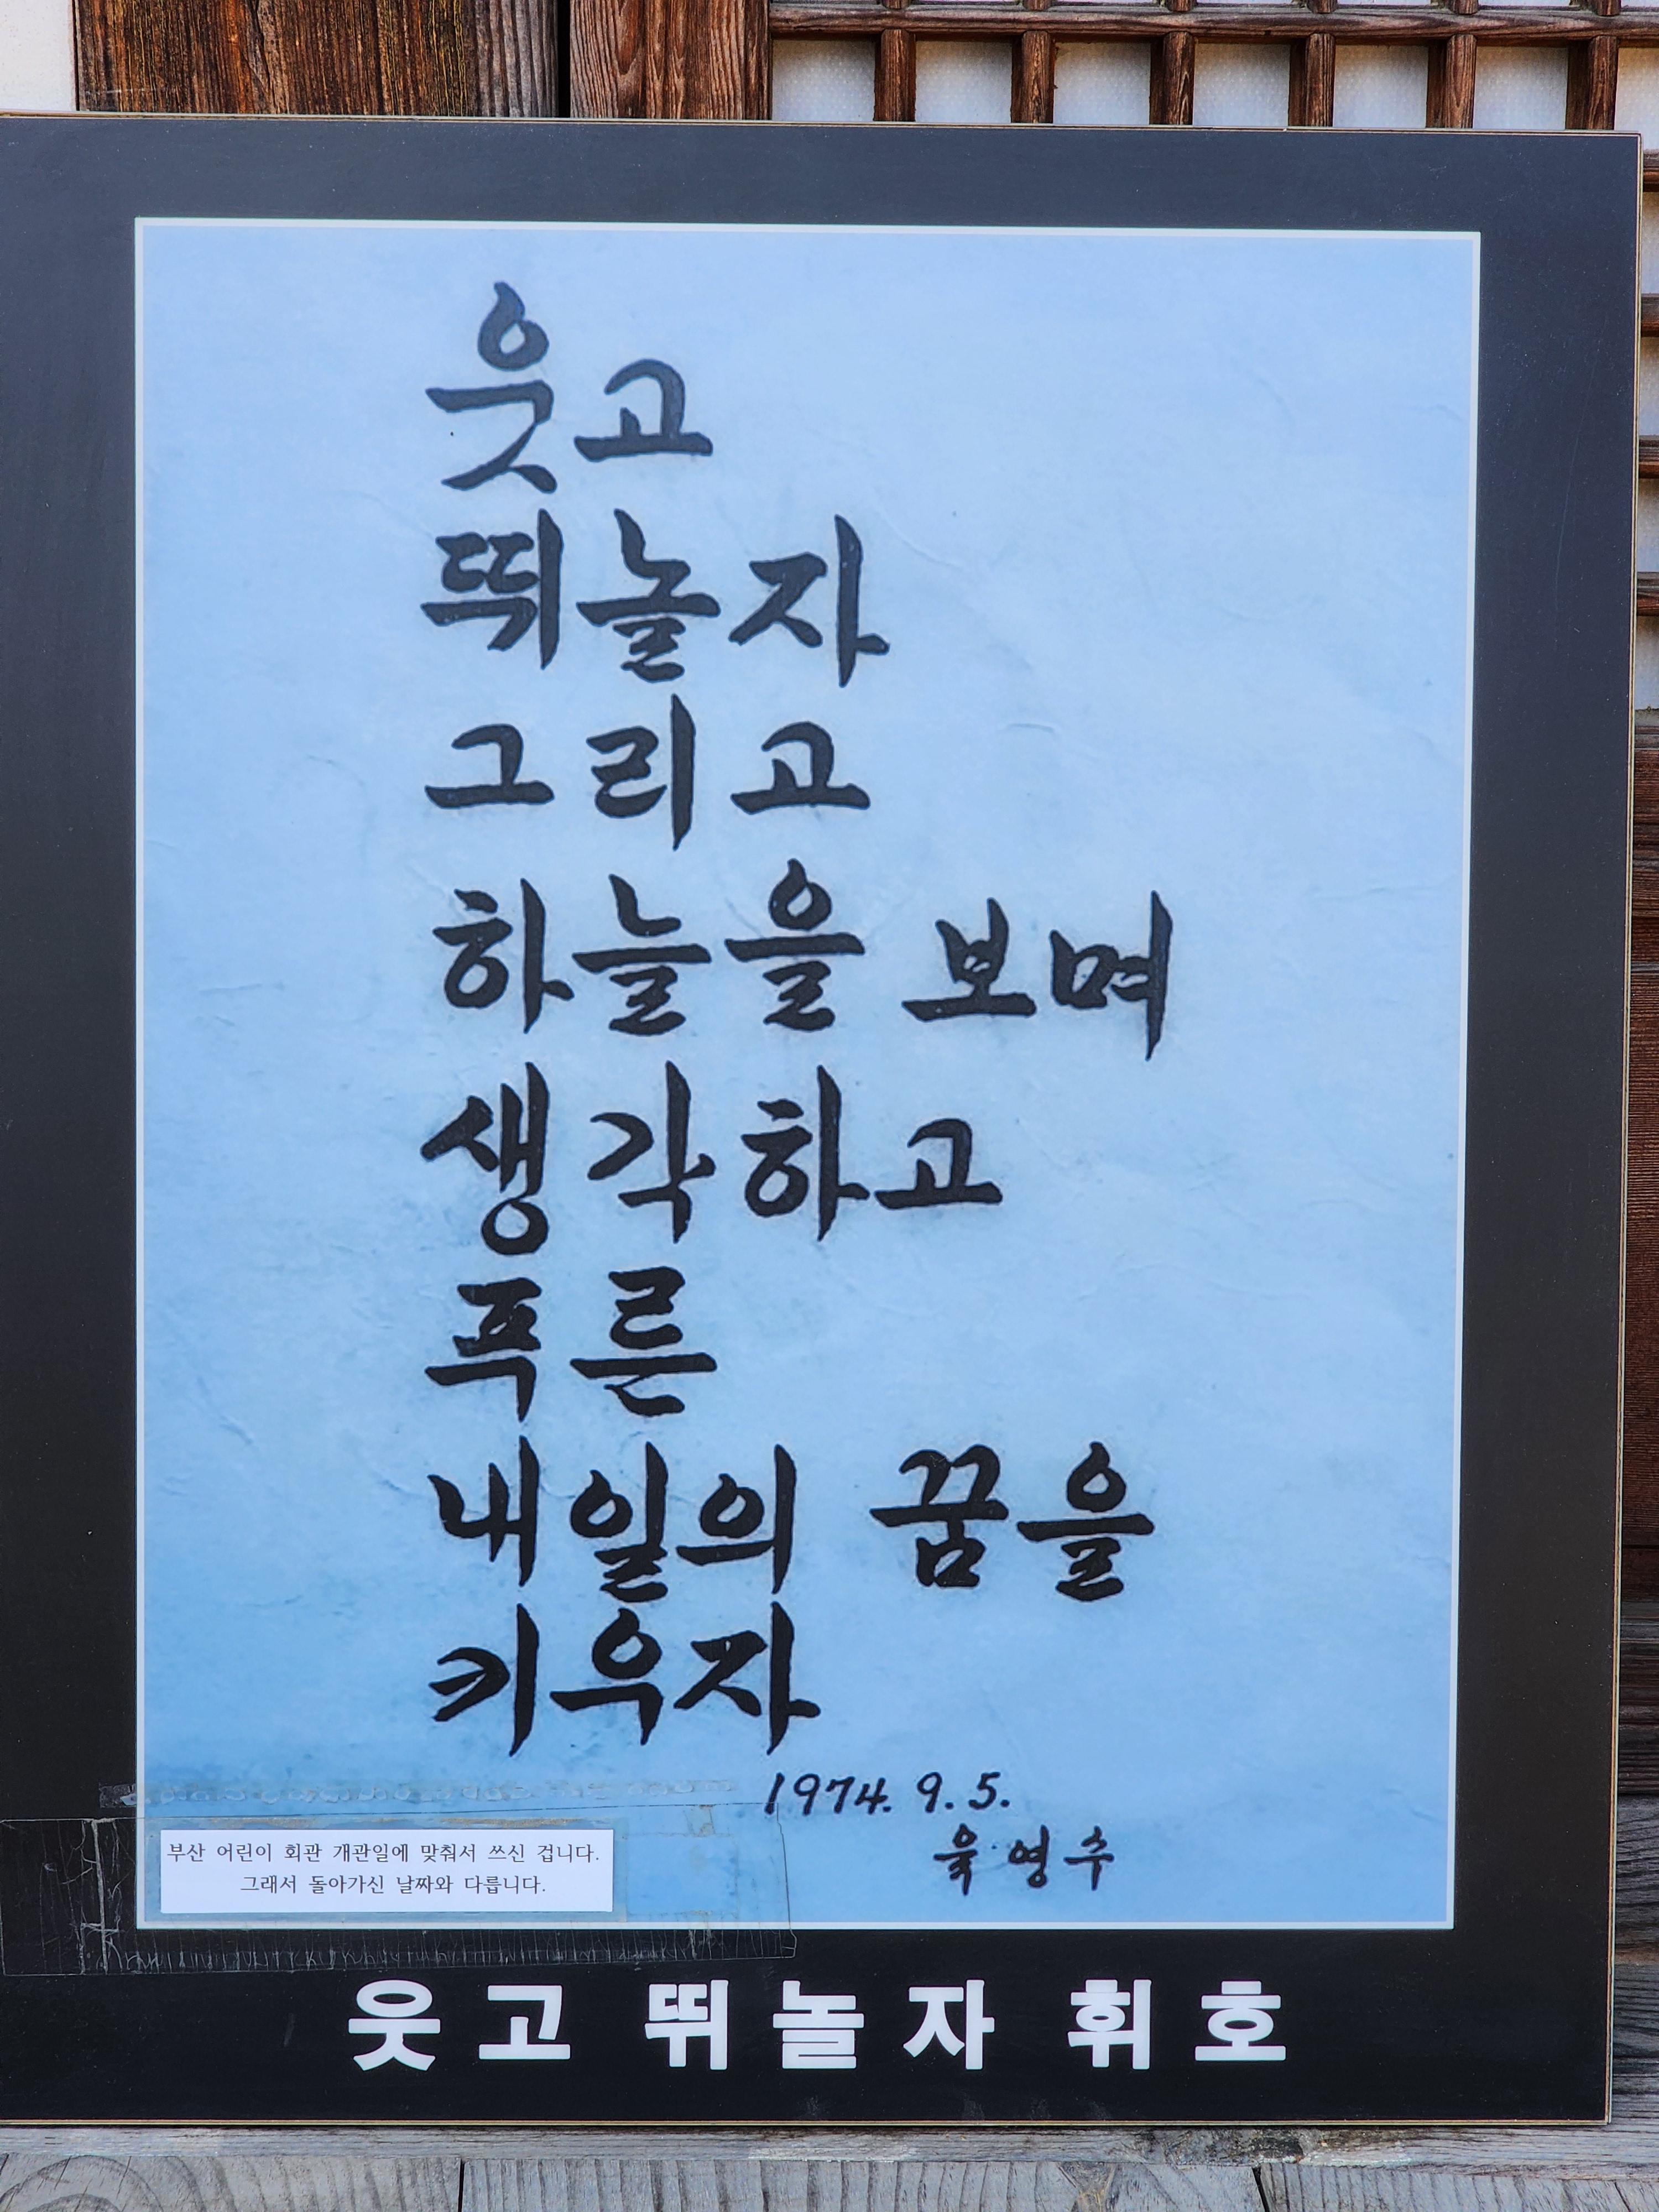 웃고
뛰놀자
그리고
하늘을 보며
생각하고
푸른
내일의 꿈을
키우자
1974. 9. 5.
육영수
부산 어린이 회관 개관일에 맞춰서 쓰신 겁니다.
그래서 돌아가신 날짜와 다릅니다.
웃고 뛰놀자 휘호